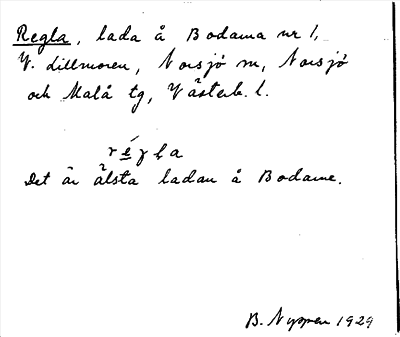 Regla, lada å Bodarna nr 1,
V. Lillmoren, Norsjö sn, Norsjö
och Malå tg, Västerb. l.
régla
Det är älsta ladan å Bodarne.
B. Nyppen 1929